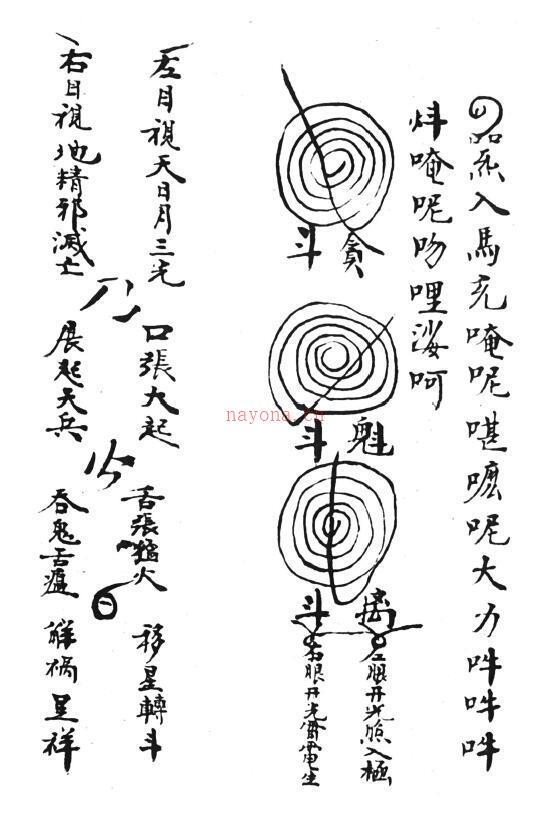 品炁入馬充唵呢堪嚒呢大力吽吽吽
炓唵呢吻哩娑呵
貪斗
魁斗
斗
左眼开光照入極
右眼开光雷電生
左目視天日月三光
右目視地精邪滅亡
口張大起
展起天兵
舌張猛火
吞鬼舌瘟
移星轉斗
解禍呈祥
nayona.cn